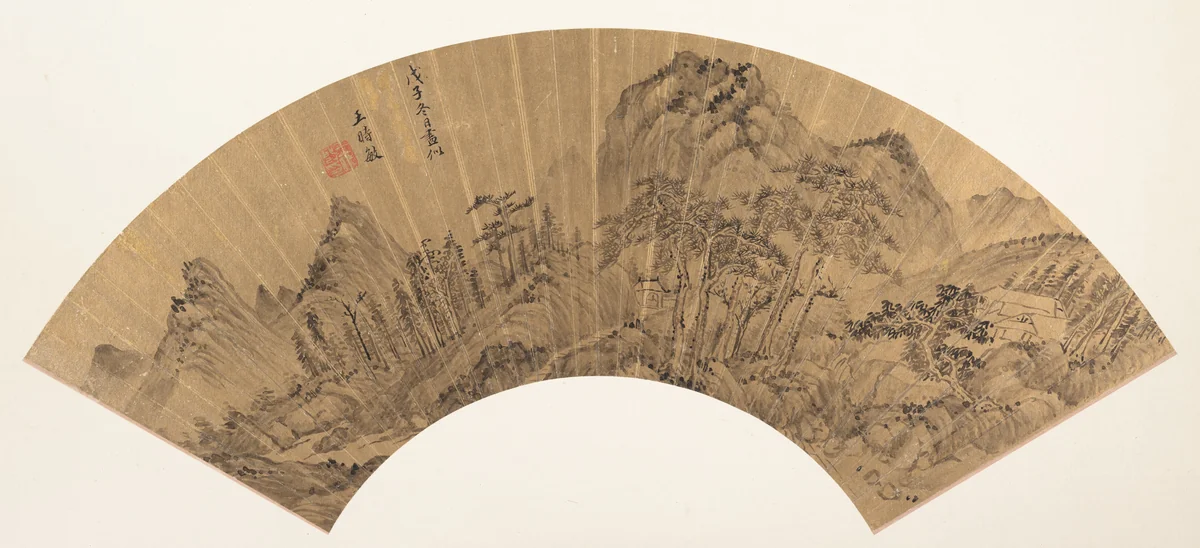 戊子冬日畫似
王時敏